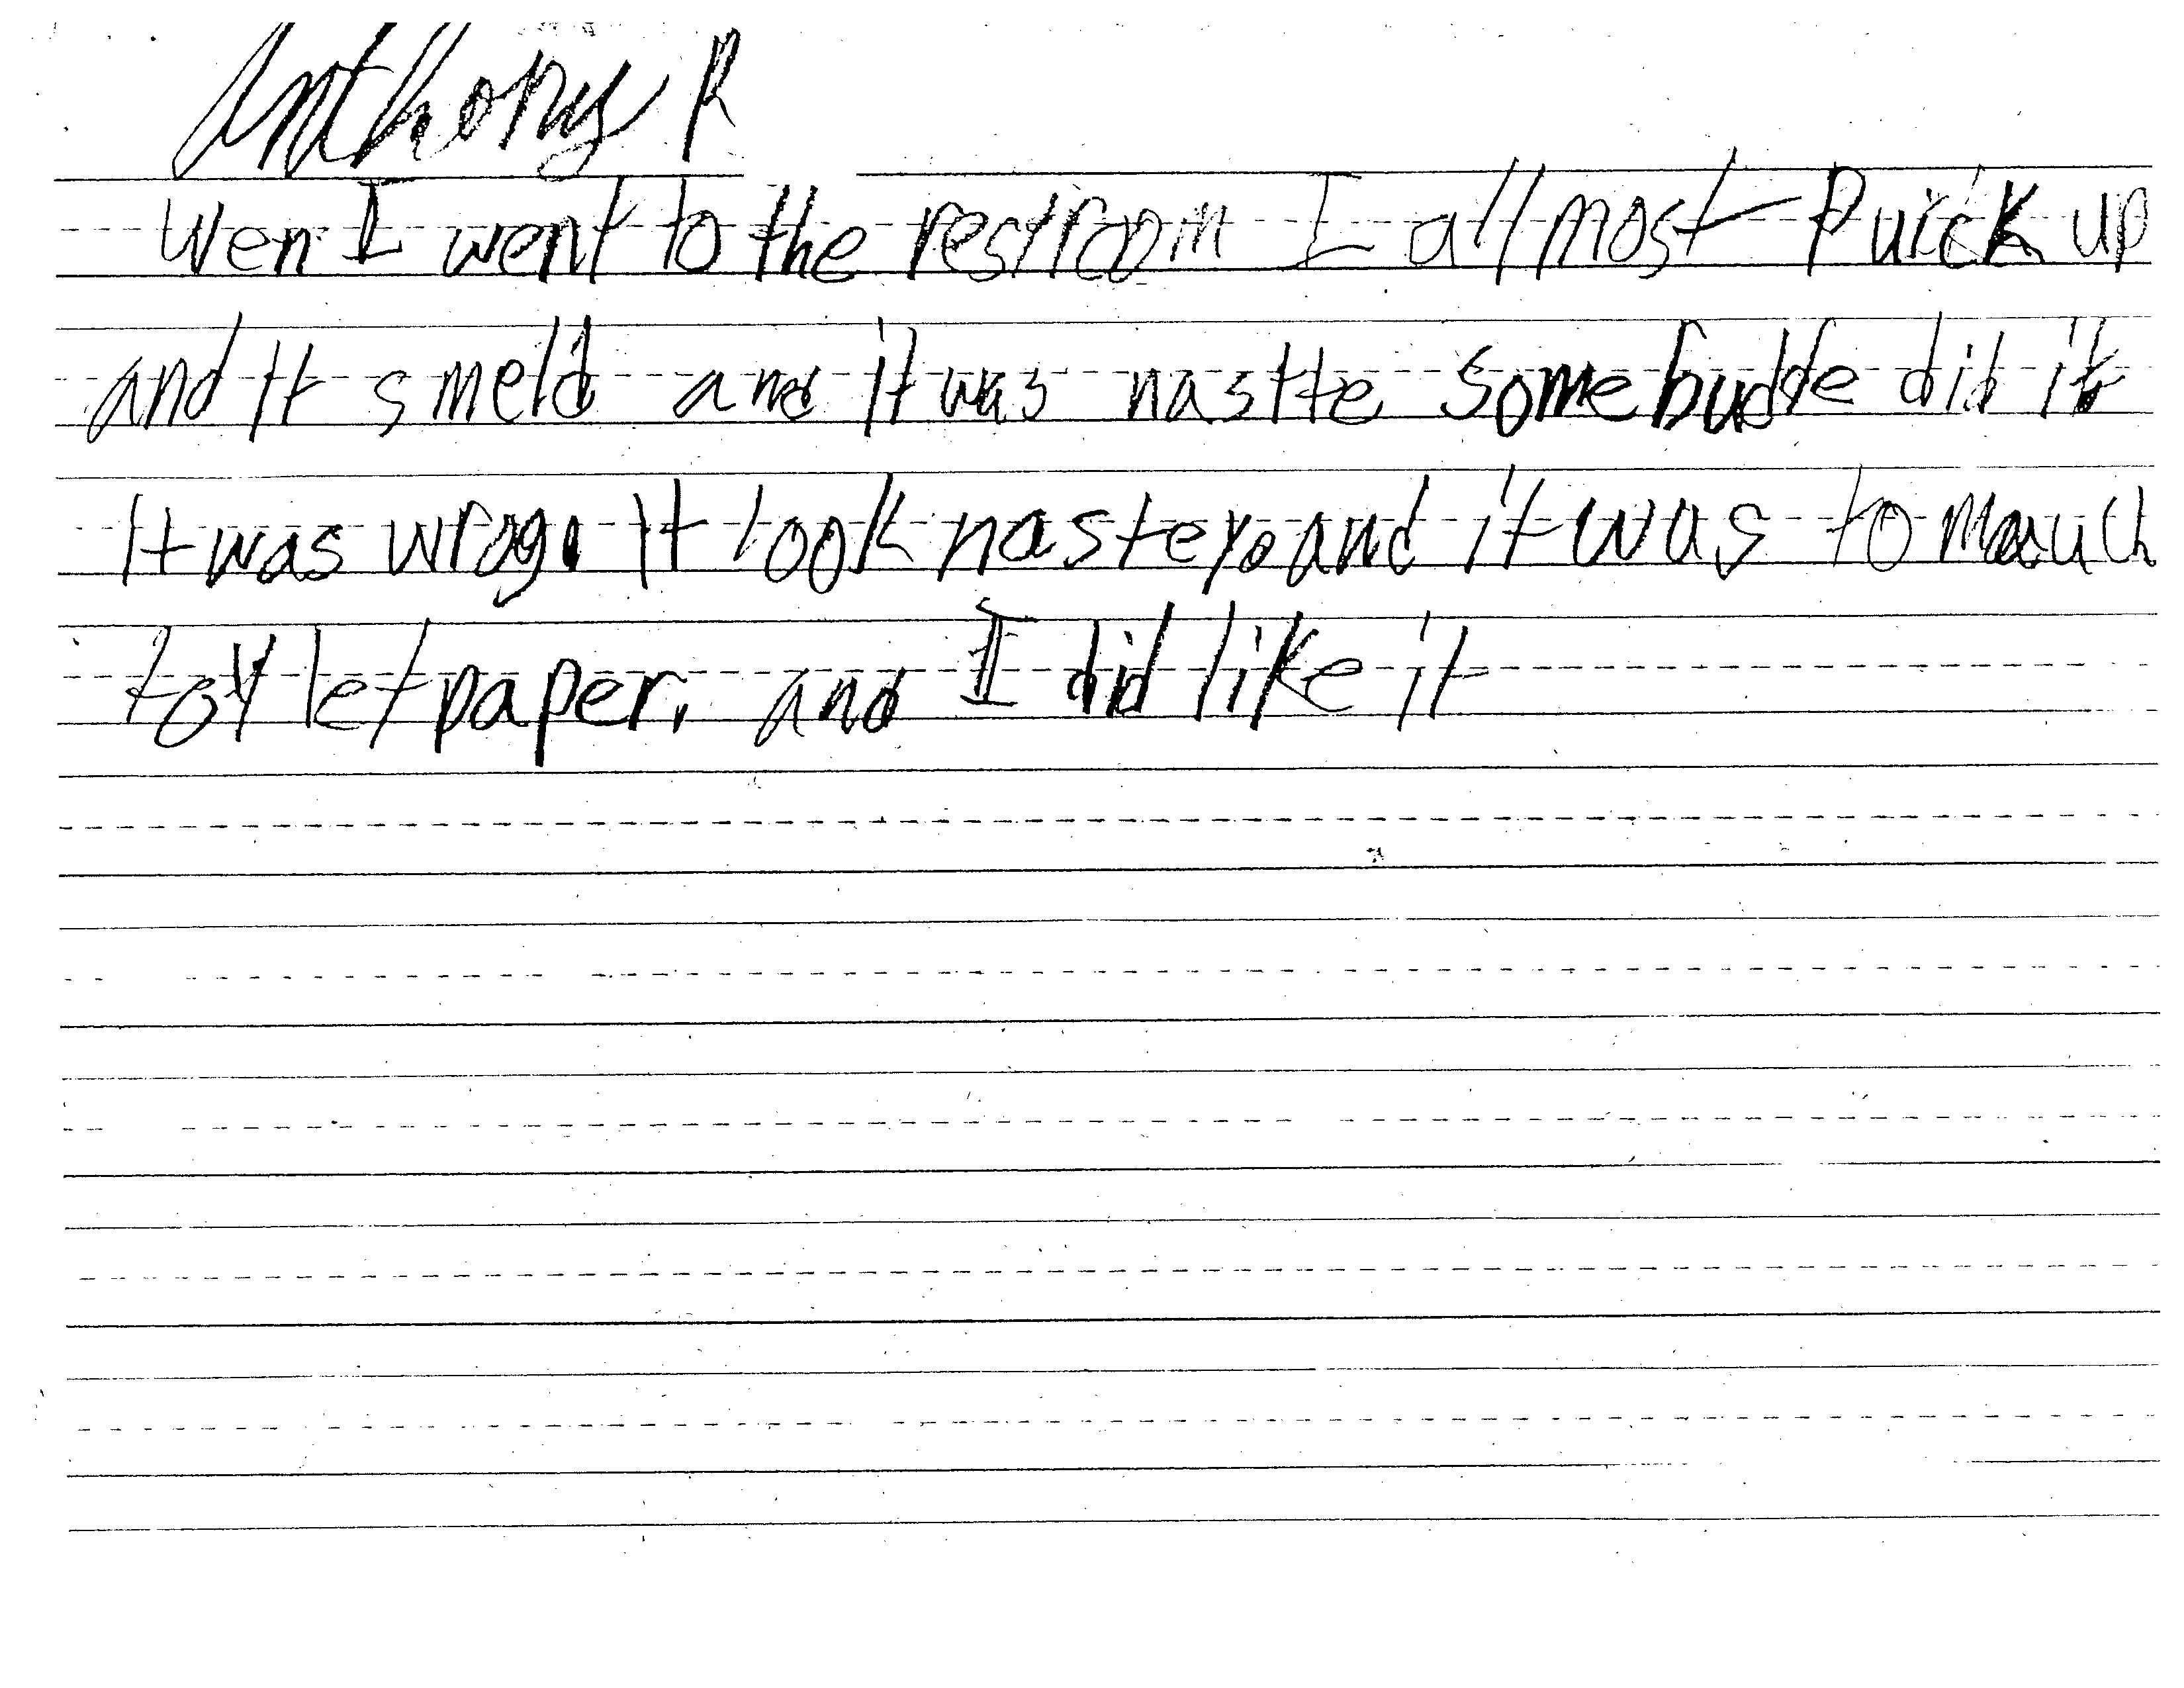 Anthony R
Wen I went to the restroom I allmost Puick up
and It smeld and it was nastte somebudde did it
It was wrog. It look nastey. and it was to mauch
toylet paper. and I did like it